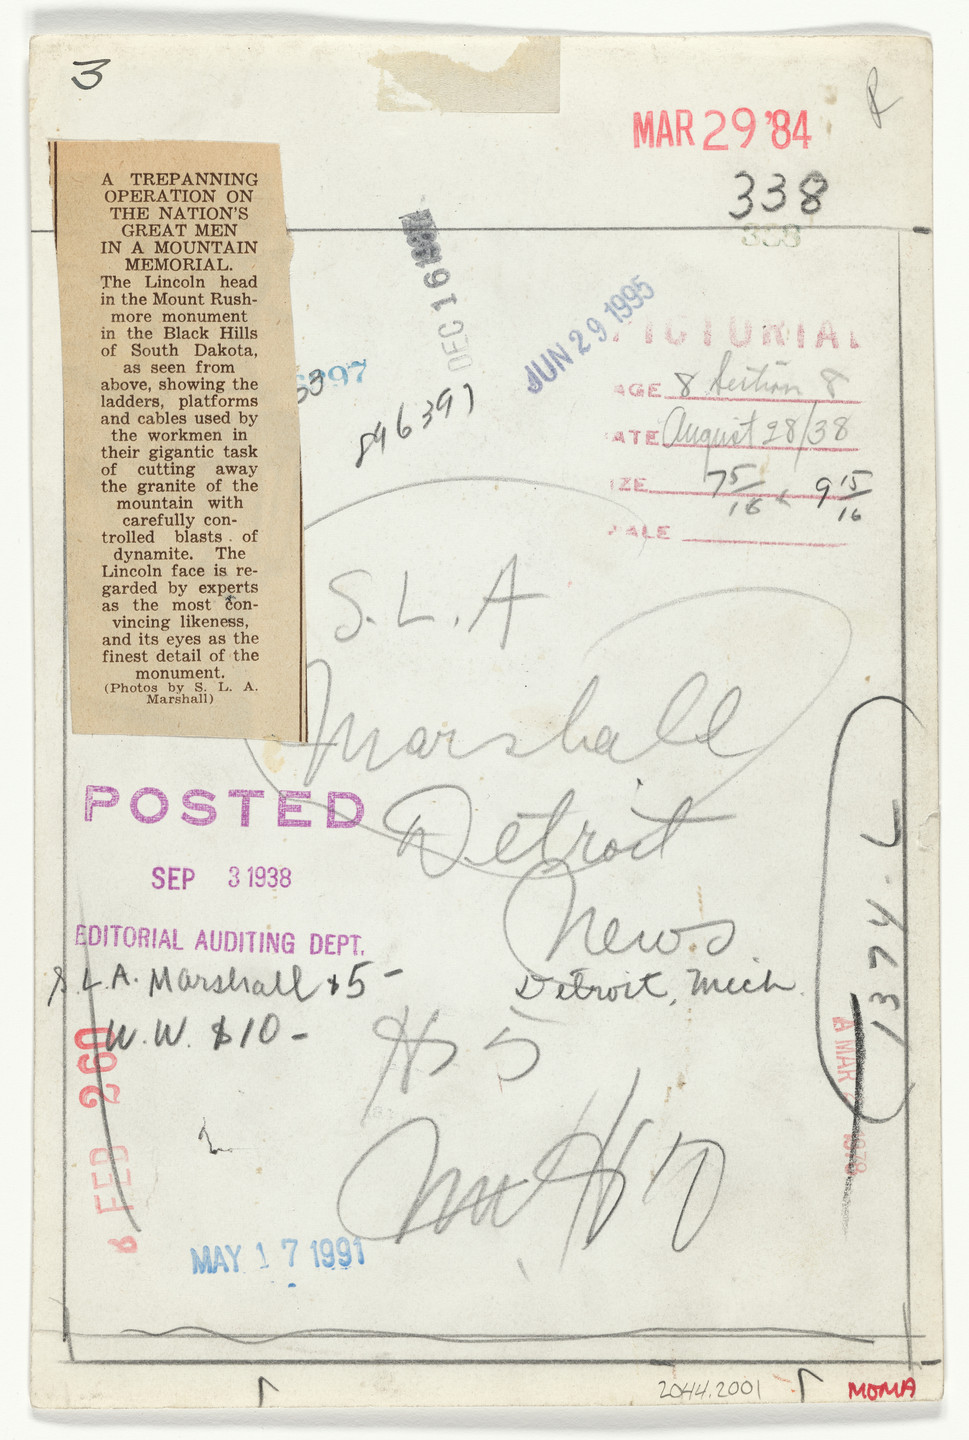 3
MAR 29 '84
338
338
A TREPANNING
OPERATION ON
THE NATION'S
GREAT MEN
IN A MOUNTAIN
MEMORIAL.
The Lincoln head
in the Mount Rush-
more monument
in the Black Hills
of South Dakota,
as seen from
above, showing the
ladders, platforms
and cables used by
the workmen in
their gigantic task
of cutting away
the granite of the
mountain with
carefully con-
trolled blasts of
dynamite. The
Lincoln face is re-
garded by experts
as the most con-
vincing likeness,
and its eyes as the
finest detail of the
monument.
(Photos by S. L. A.
Marshall)
DEC 16
JUN 29 1995
896397
PICTORIAL
AGE 8 Section 8
ATE August 28/38
IZE 7 5/16 x 9 15/16
ALE
S. L. A
Marshall
Detroit
News
Detroit, Mich.
POSTED
SEP 3 1938
EDITORIAL AUDITING DEPT.
S. L. A. Marshall $5-
W. W. $10-
1374-L
8 FEB 260
MAY 17 1991
2044.2001
MOMA